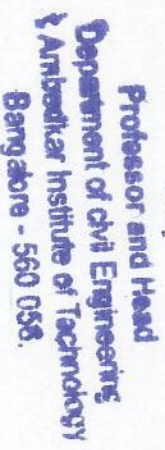 Professor and Head
Department of civil Engineering
Ambedkar Institute of Technology
Bangalore - 560 056.